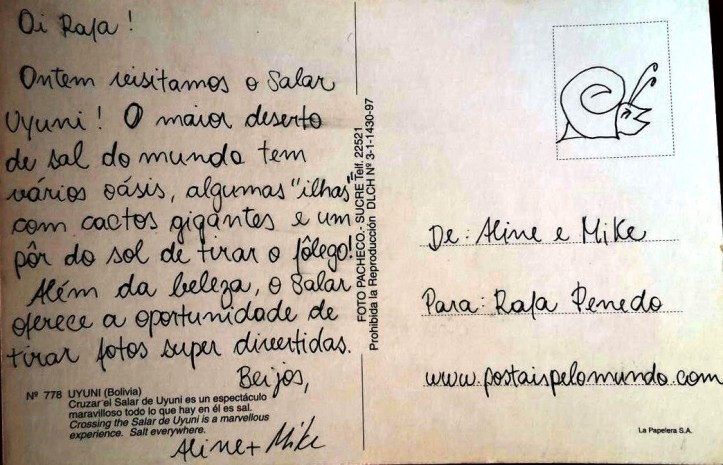 Oi Rafa!
Ontem visitamos o Salar
Uyuni! O maior deserto
de sal do mundo tem
vários oásis, algumas "ilhas"
com cactos gigantes e um
pôr do sol de tirar o fôlego!
Além da beleza, o Salar
oferece a oportunidade de
tirar fotos super divertidas.
Beijos,
Aline + Mike
Nº 778 UYUNI (Bolivia)
Cruzar el Salar de Uyuni es un espectáculo
maravilloso todo lo que hay en él es sal.
Crossing the Salar de Uyuni is a marvellous
experience. Salt everywhere.
FOTO PACHECO.- SUCRE Telf. 22521
Prohibida la Reproducción DLCH Nº 3-1-1430-97
De: Aline e Mike
Para: Rafa Penedo
www.postaispelomundo.com
La Papelera S.A.